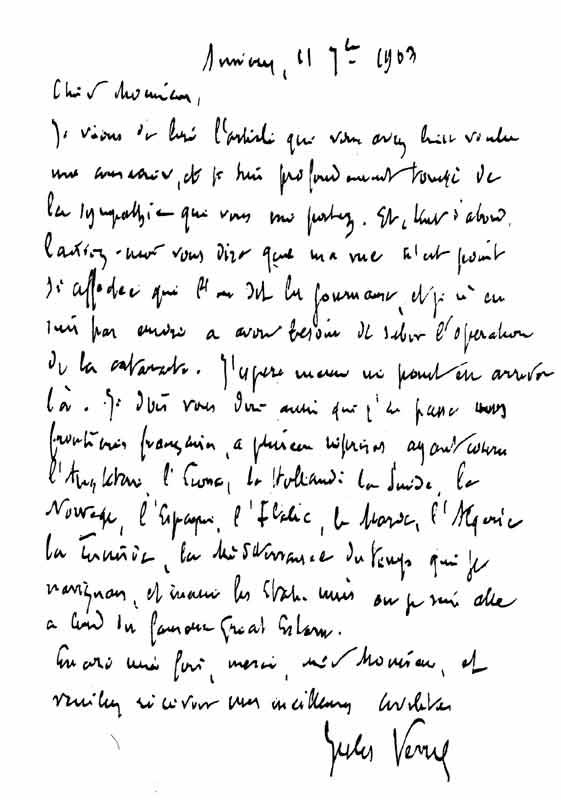 Amiens, 11 7bre 1903
Cher Monsieur,
Je viens de lire l'article que vous avez bien voulu
me et je suis profondément touché de
la sympathie que vous me portez. Et, tout d'abord,
laissez-moi vous dire que ma vue n'est point
si affectée que l'on dit les journaux, et je n'en
suis pas encore à avoir besoin de subir l'opération
de la cataracte. J'espère même ne point en arriver
là. Je dois vous dire aussi que j'ai passé nos
frontières françaises, à plusieurs reprises ayant couru
l'Angleterre, l'Ecosse, la Hollande la Suède, la
Norvège, l'Espagne, l'Italie, le Maroc, l'Algérie
la Tunisie, la Méditerranée du temps que je
navigeais, et même les Etats unis où je suis allé
à bord du fameux Great Eastern.
Encore une fois, merci, cher Monsieur, et
veuillez recevoir mes meilleures cordialités
Jules Verne